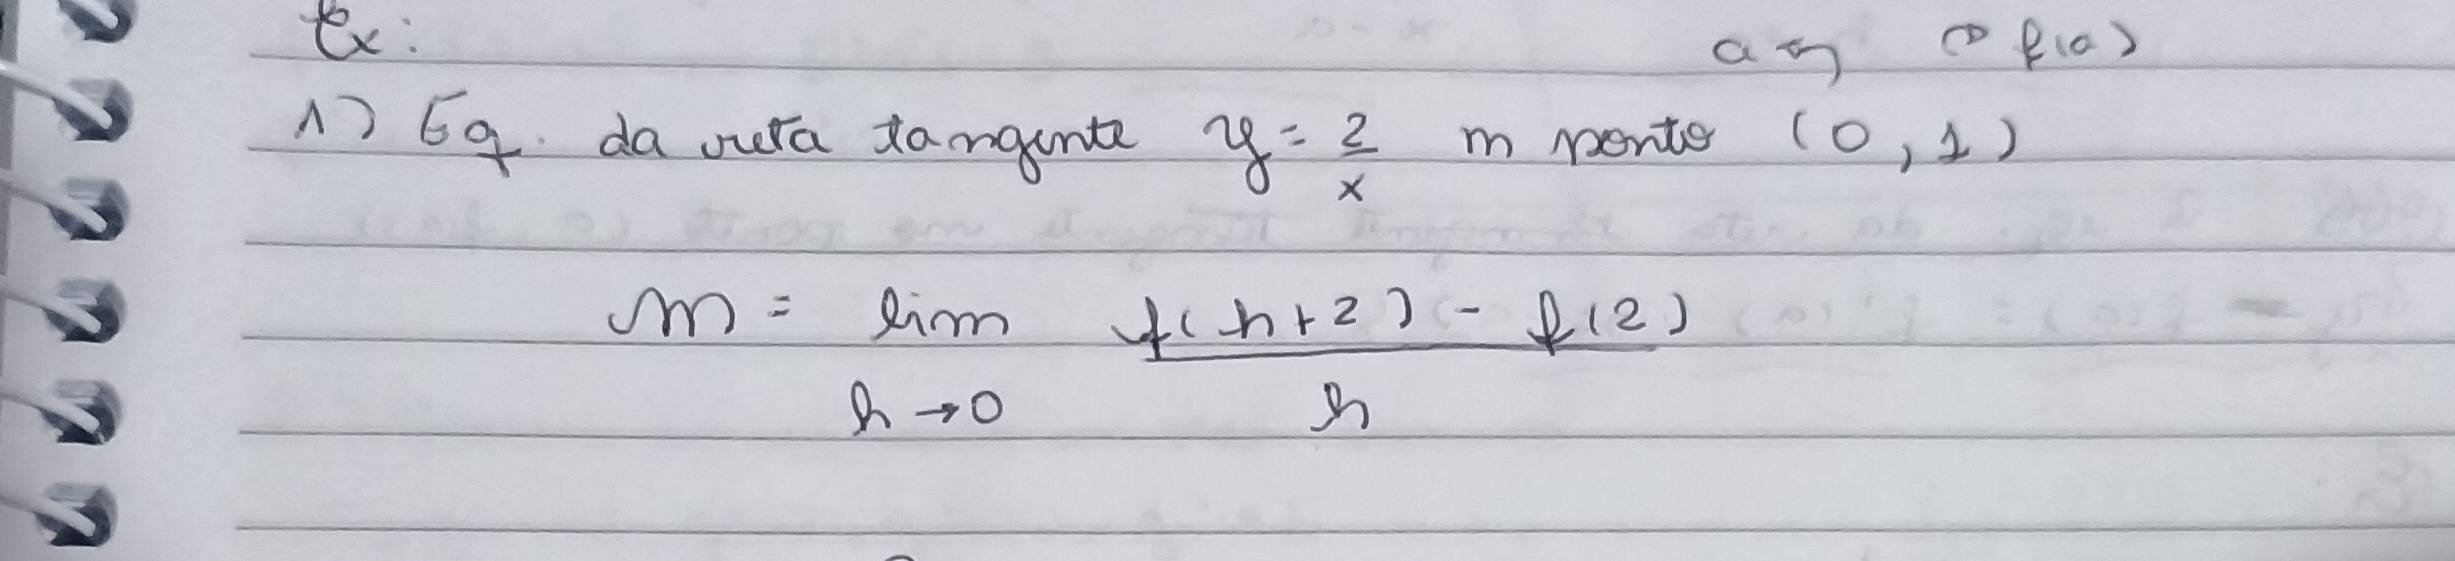 Ex:
a f(a)
1) Eq. da reta tangente y = 2/x n ponto (0, 1)
m = lim f(h+2) - f(2)
h→0 h